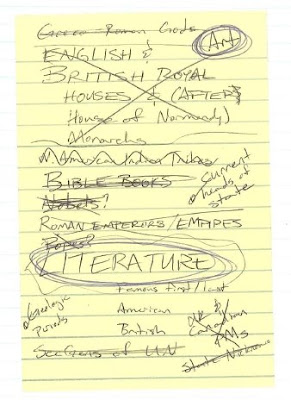 Greco-Roman Gods
Art
ENGLISH &
BRITISH ROYAL
HOUSES & (AFTER
House of Normandy)
Monarchs
American Indian Tribes
BIBLE BOOKS
current
heads of
state
Nobels?
ROMAN EMPERORS/EMPIRES
Popes?
LITERATURE
Famous first/last
Geologic
Periods
American
British
UK &
Canadian
PMs
SecGens of UN
State Nicknames